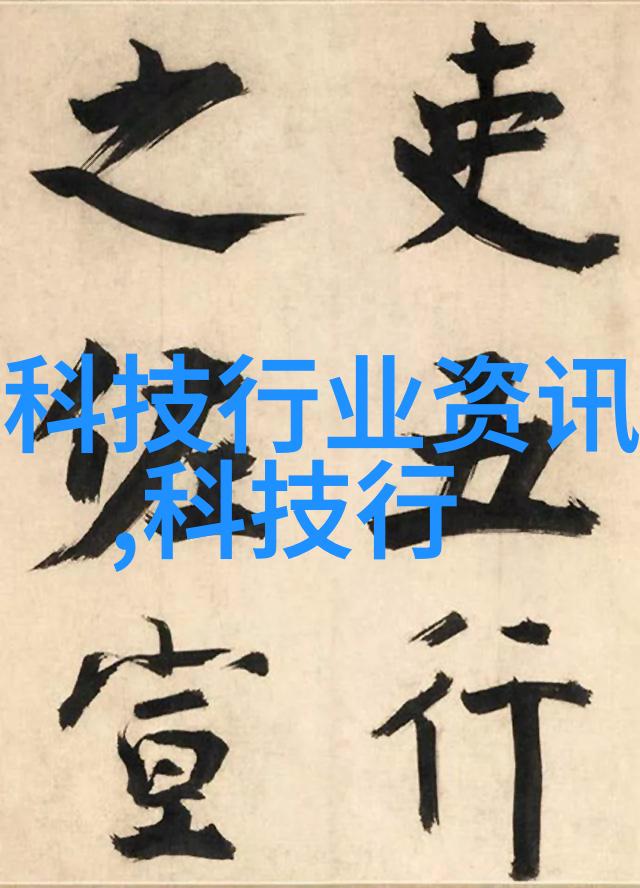 科技行业资讯
,科技行
吏五行
之宣